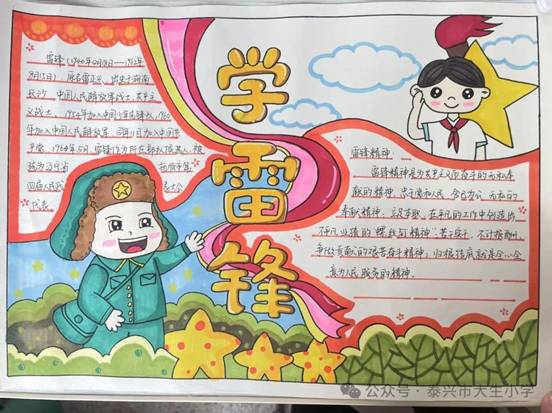 学雷锋
雷锋(1940年12月18日—1962年
8月15日),原名雷正兴,出生于湖南
长沙,中国人民解放军战士,共产主
义战士,1954年加入中国少年先锋队,1960
年加入中国人民解放军,同年11月加入中国共
产党。1961年5月,雷锋作为所在部队候选人,被
选为
四届人民代
代表。
雷锋精神:
雷锋精神是为共产主义而奋斗的无私奉
献的精神,忠于党和人民、舍己为公、大公无私的
奉献精神;立足本职、在平凡的工作中创造出
不平凡业绩的“螺丝钉精神”;苦干实干、不计报酬、
争做贡献的艰苦奋斗精神;归根结底就是全心全
意为人民服务的精神。
公众号·泰兴市大生小学